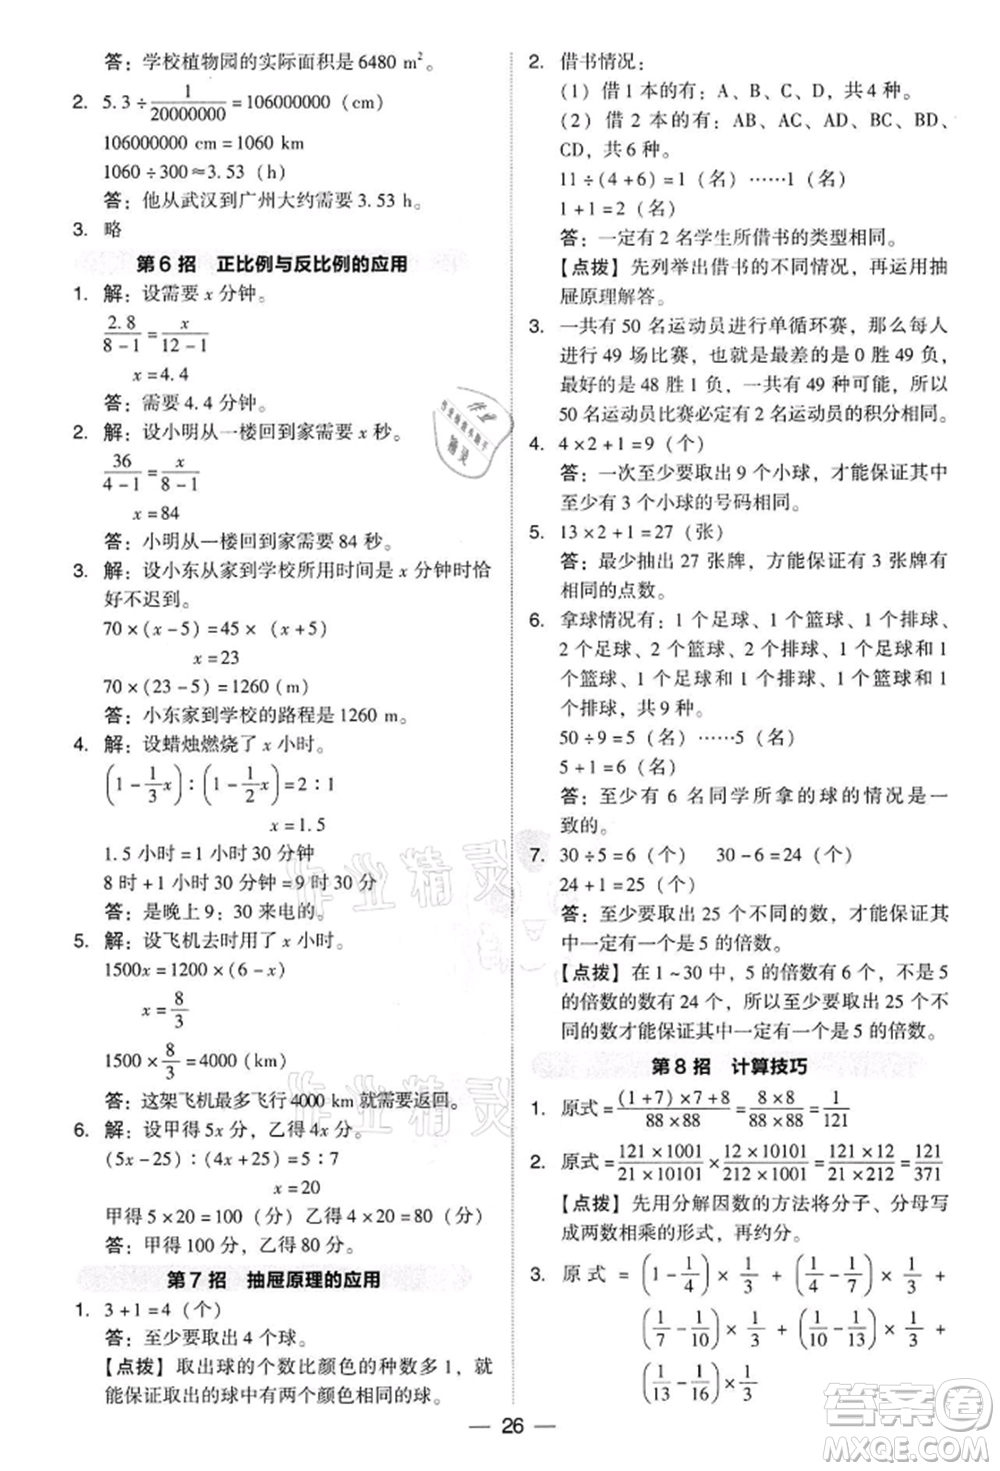 答：学校植物园的实际面积是 6480 m²。
2. 5.3÷1/20000000=106000000（cm）
106000000 cm=1060 km
1060÷300≈3.53（h）
答：他从武汉到广州大约需要 3.53 h。
3. 略
第 6 招 正比例与反比例的应用
1. 解：设需要 x 分钟。
2.8/(8-1)=x/(12-1)
x=4.4
答：需要 4.4 分钟。
2. 解：设小明从一楼回到家需要 x 秒。
36/(4-1)=x/(8-1)
x=84
答：小明从一楼回到家需要 84 秒。
3. 解：设小东从家到学校所用时间是 x 分钟时恰
好不迟到。
70×(x-5)=45×(x+5)
x=23
70×(23-5)=1260(m)
答：小东家到学校的路程是 1260 m。
4. 解：设蜡烛燃烧了 x 小时。
(1-1/3x)：(1-1/2x)=2：1
x=1.5
1.5 小时=1 小时 30 分钟
8 时+1 小时 30 分钟=9 时 30 分
答：是晚上 9：30 来电的。
5. 解：设飞机去时用了 x 小时。
1500x=1200×(6-x)
x=8/3
1500×8/3=4000(km)
答：这架飞机最多飞行 4000 km 就需要返回。
6. 解：设甲得 5x 分，乙得 4x 分。
(5x-25)：(4x+25)=5：7
x=20
甲得 5×20=100（分） 乙得 4×20=80（分）
答：甲得 100 分，乙得 80 分。
第 7 招 抽屉原理的应用
1. 3+1=4（个）
答：至少要取出 4 个球。
【点拨】取出球的个数比颜色的种数多 1，就
能保证取出的球中有两个颜色相同的球。
2. 借书情况：
（1）借 1 本的有：A、B、C、D，共 4 种。
（2）借 2 本的有：AB、AC、AD、BC、BD、
CD，共 6 种。
11÷(4+6)=1（名）……1（名）
1+1=2（名）
答：一定有 2 名学生所借书的类型相同。
【点拨】先列举出借书的不同情况，再运用抽
屉原理解答。
3. 一共有 50 名运动员进行单循环赛，那么每人
进行 49 场比赛，也就是最差的是 0 胜 49 负，
最好的是 48 胜 1 负，一共有 49 种可能，所以
50 名运动员比赛必定有 2 名运动员的积分相同。
4. 4×2+1=9（个）
答：一次至少要取出 9 个小球，才能保证其中
至少有 3 个小球的号码相同。
5. 13×2+1=27（张）
答：最少抽出 27 张牌，方能保证有 3 张牌有
相同的点数。
6. 拿球情况有：1 个足球、1 个篮球、1 个排球、
2 个足球、2 个篮球、2 个排球、1 个足球和 1
个篮球、1 个足球和 1 个排球、1 个篮球和 1
个排球，共 9 种。
50÷9=5（名）……5（名）
5+1=6（名）
答：至少有 6 名同学所拿的球的情况是一
致的。
7. 30÷5=6（个） 30-6=24（个）
24+1=25（个）
答：至少要取出 25 个不同的数，才能保证其
中一定有一个是 5 的倍数。
【点拨】在 1~30 中，5 的倍数有 6 个，不是 5
的倍数有 24 个，所以至少要取出 25 个不
同的数才能保证其中一定有一个是 5 的倍数。
第 8 招 计算技巧
1. 原式=((1+7)×7+8)/(88×88)=(8×8)/(88×88)=1/121
2. 原式=(121×1001)/(21×10101)×(12×10101)/(212×1001)=(121×12)/(21×212)=121/371
【点拨】先用分解因数的方法将分子、分母写
成两数相乘的形式，再约分。
3. 原式=(1-1/4)×1/3+(1/4-1/7)×1/3+
(1/7-1/10)×1/3+(1/10-1/13)×1/3+
(1/13-1/16)×1/3
— 26 —
作业精灵
作业精灵
答案圈
MXQE.COM